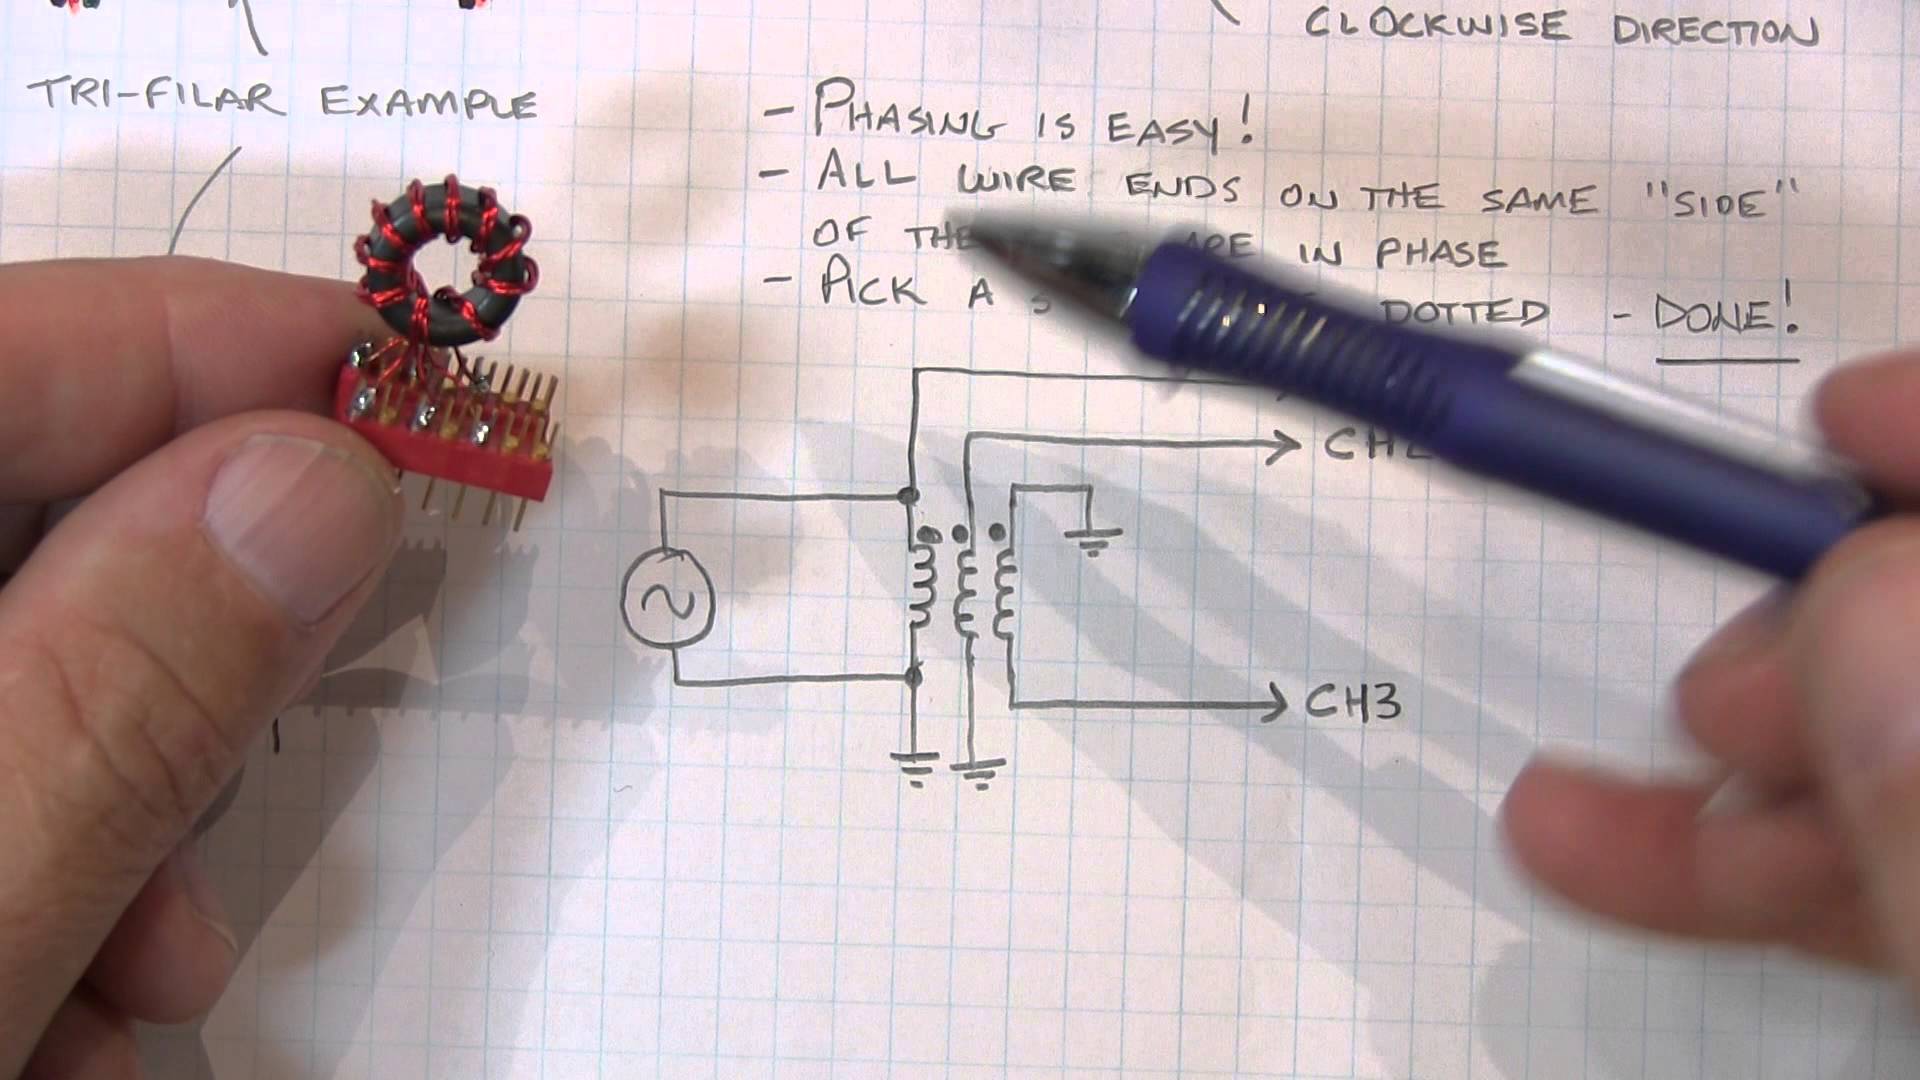 CLOCKWISE DIRECTION
TRI-FILAR EXAMPLE
- PHASING IS EASY!
- ALL WIRE ENDS ON THE SAME "SIDE"
OF THE ARE IN PHASE
- PICK A DOTTED - DONE!
CH2
CH3